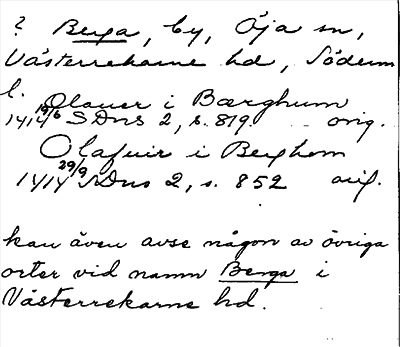 ? Berga, by, Öja sn,
Västerrekarne hd, Söderm
l.
Olauer i Bærghum
1414 19/6 SDns 2, s. 819. orig.
Olafuir i Berghom
1414 29/9 SDns 2, s. 852 orig.
kan även avse någon av övriga
orter vid namn Berga i
Västerrekarne hd.